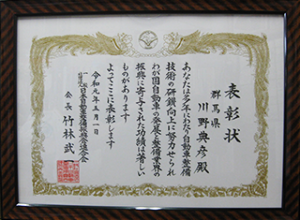 表彰状
群馬県
川野典彦殿
あなたは多年にわたり自動車整備
技術の研鑽向上に努力せられ
わが国自動車の発展と整備業界の
振興に寄与された功績は著しい
ものがあります
よってここに表彰します
令和元年五月一日
一般社団法人日本自動車整備振興会連合会
会長 竹林武一